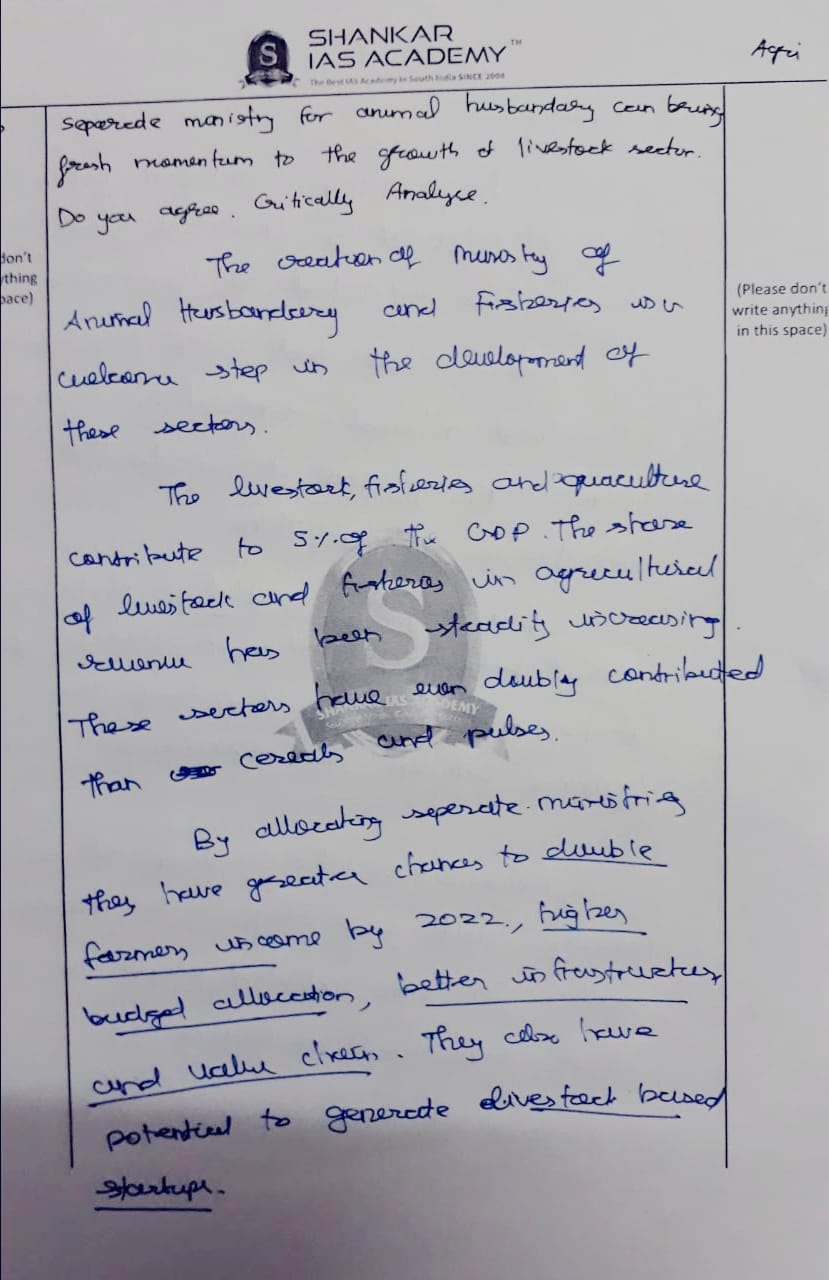 SHANKAR
IAS ACADEMY TM
The Best IAS Academy In South India SINCE 2004
Agri
seperede monistry for animal husbandary can bring
fresh momentum to the growth of livestock sector.
Do you agree. Critically Analyse.
The creation of Ministry of
don't
Animal Husbandary and Fisheries is a
ything
pace)
(Please don't
write anything
in this space)
welcome step in the development of
these sectors.
The livestock, fisheries and aquaculture
contribute to 5% of the GDP. The share
of livestock and fisheries in agricultural
revenue has been steadily increasing.
These sectors have even doubly contributed
than cereals and pulses.
By allocating seperate ministries
they have greater chances to double
farmers income by 2022., higher
budget allocation, better infrastructure
and value chain. They also have
potential to generate livestock based
startups.
S
SHANKAR IAS ACADEMY